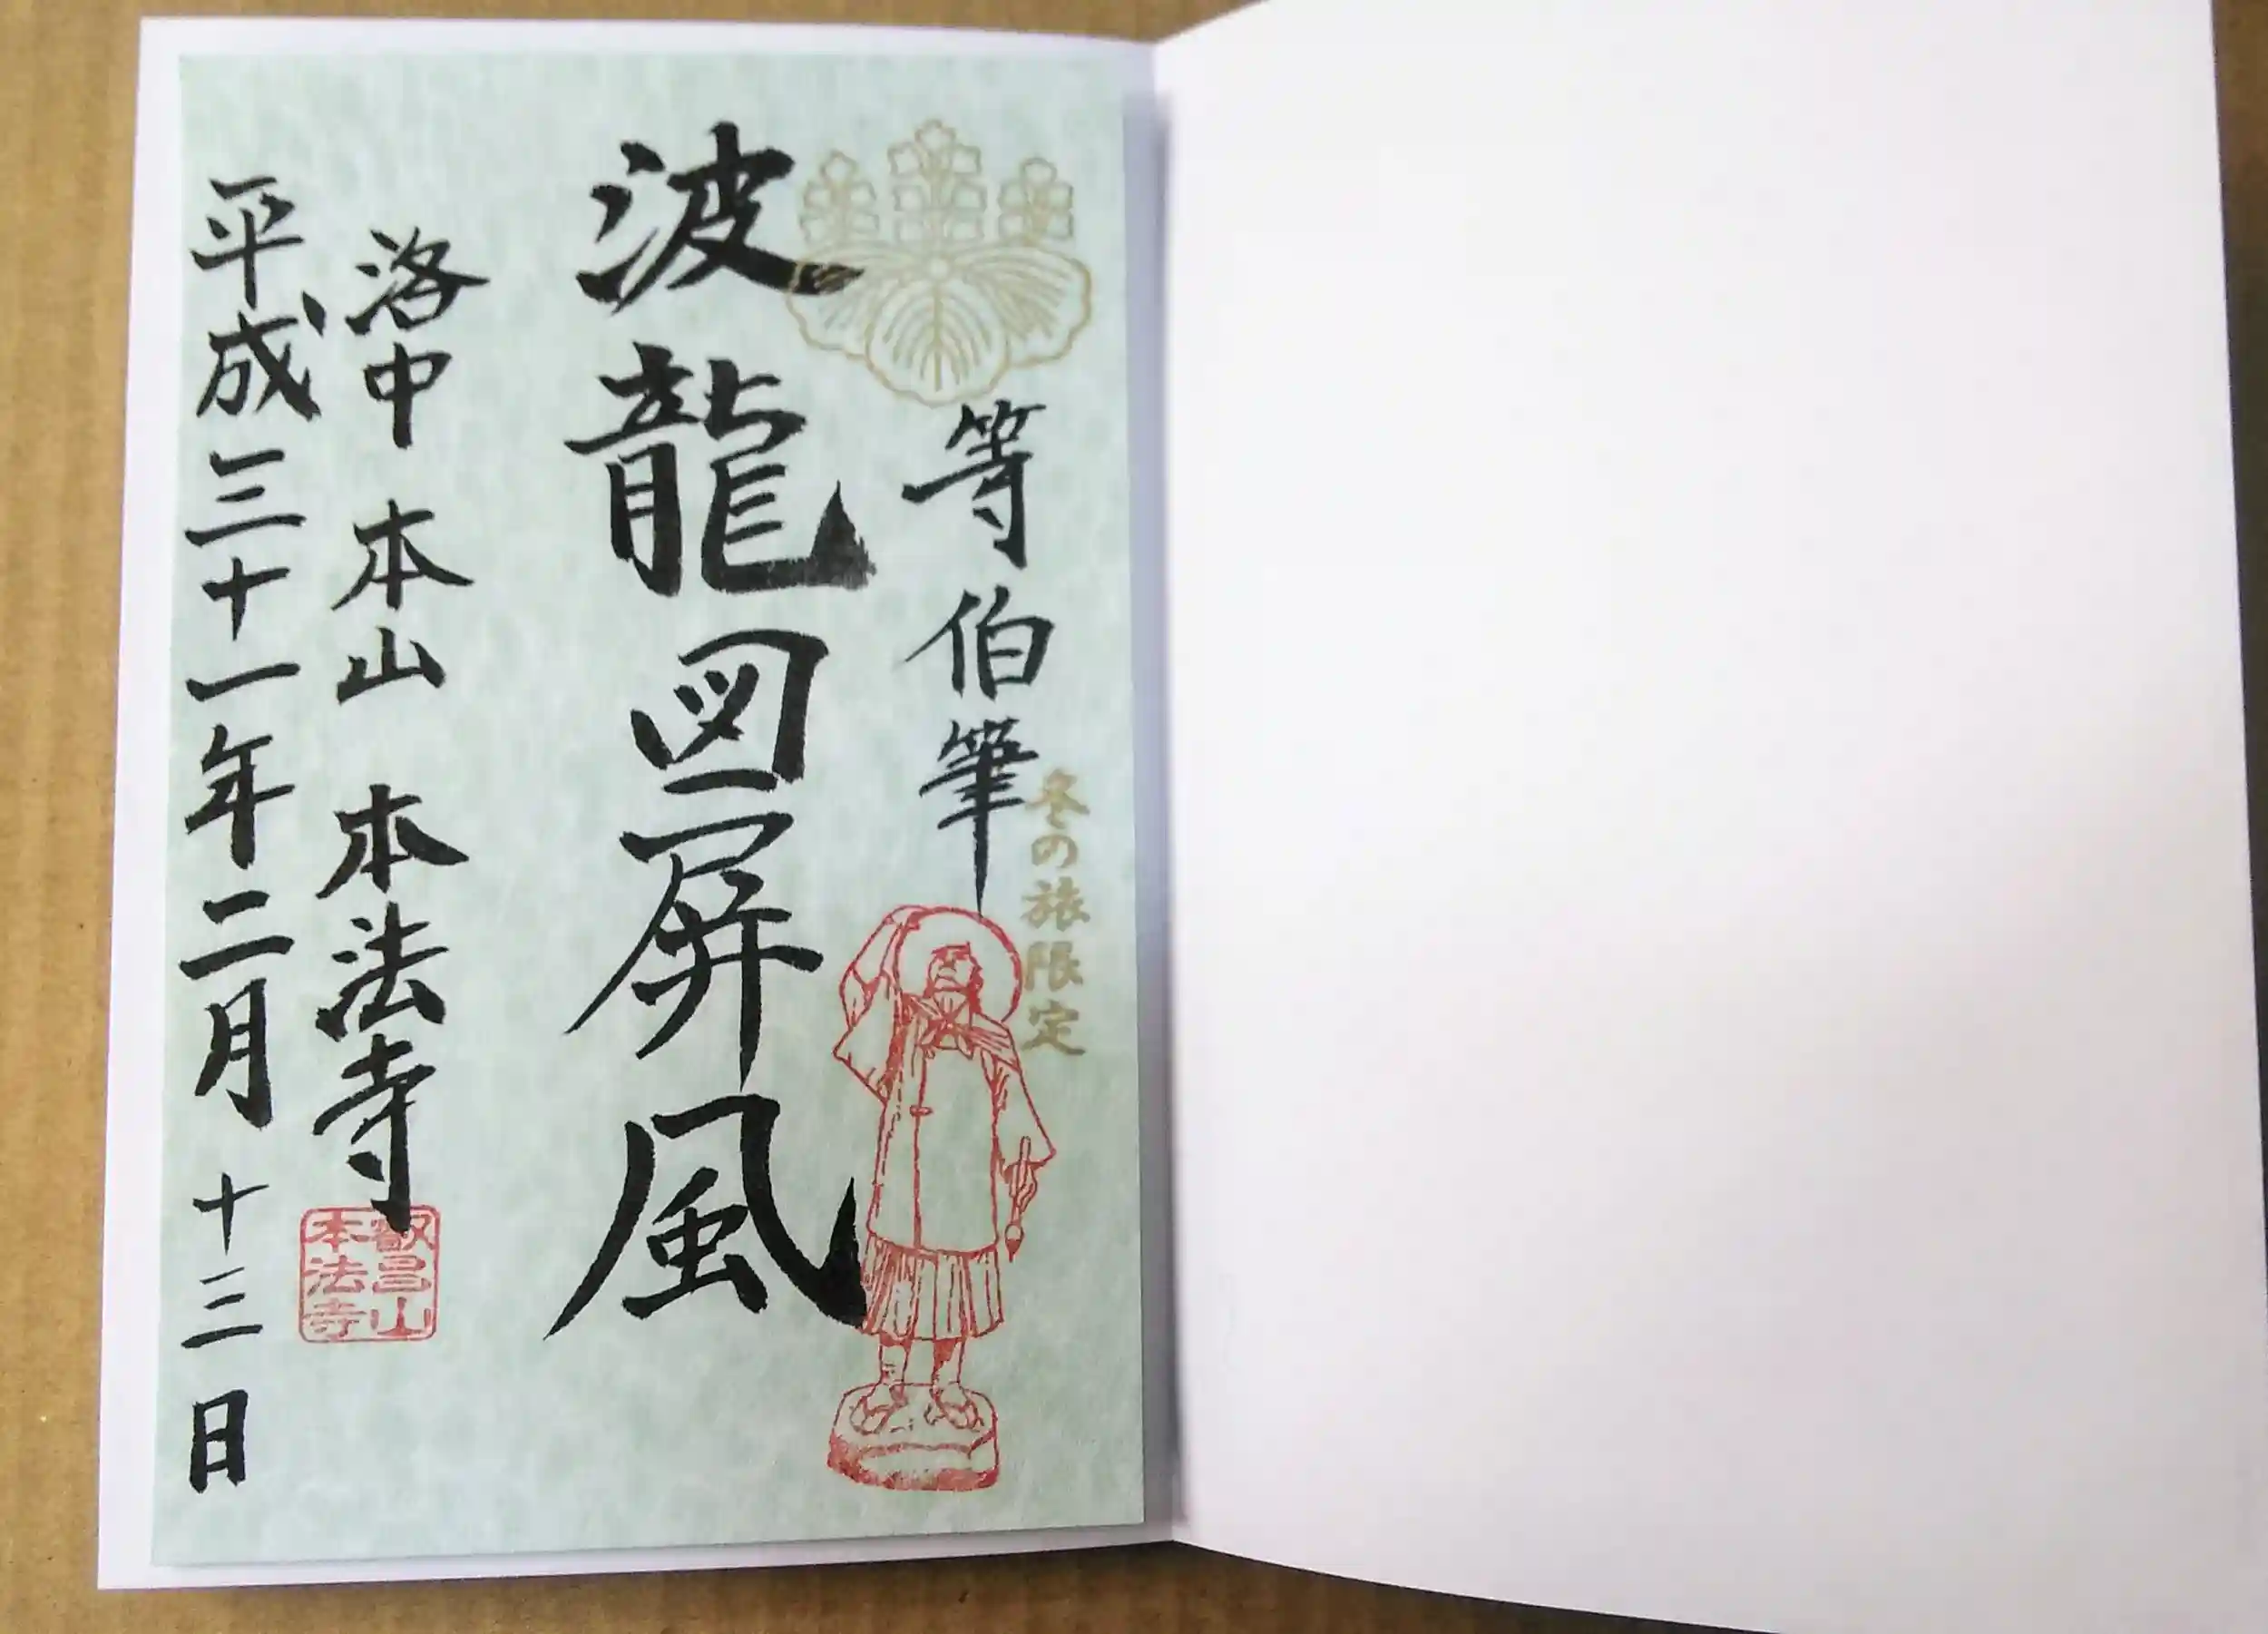 冬の旅限定
等伯筆
波龍図屏風
洛中 本山 本法寺
叡昌山
本法寺
平成三十一年二月十三日